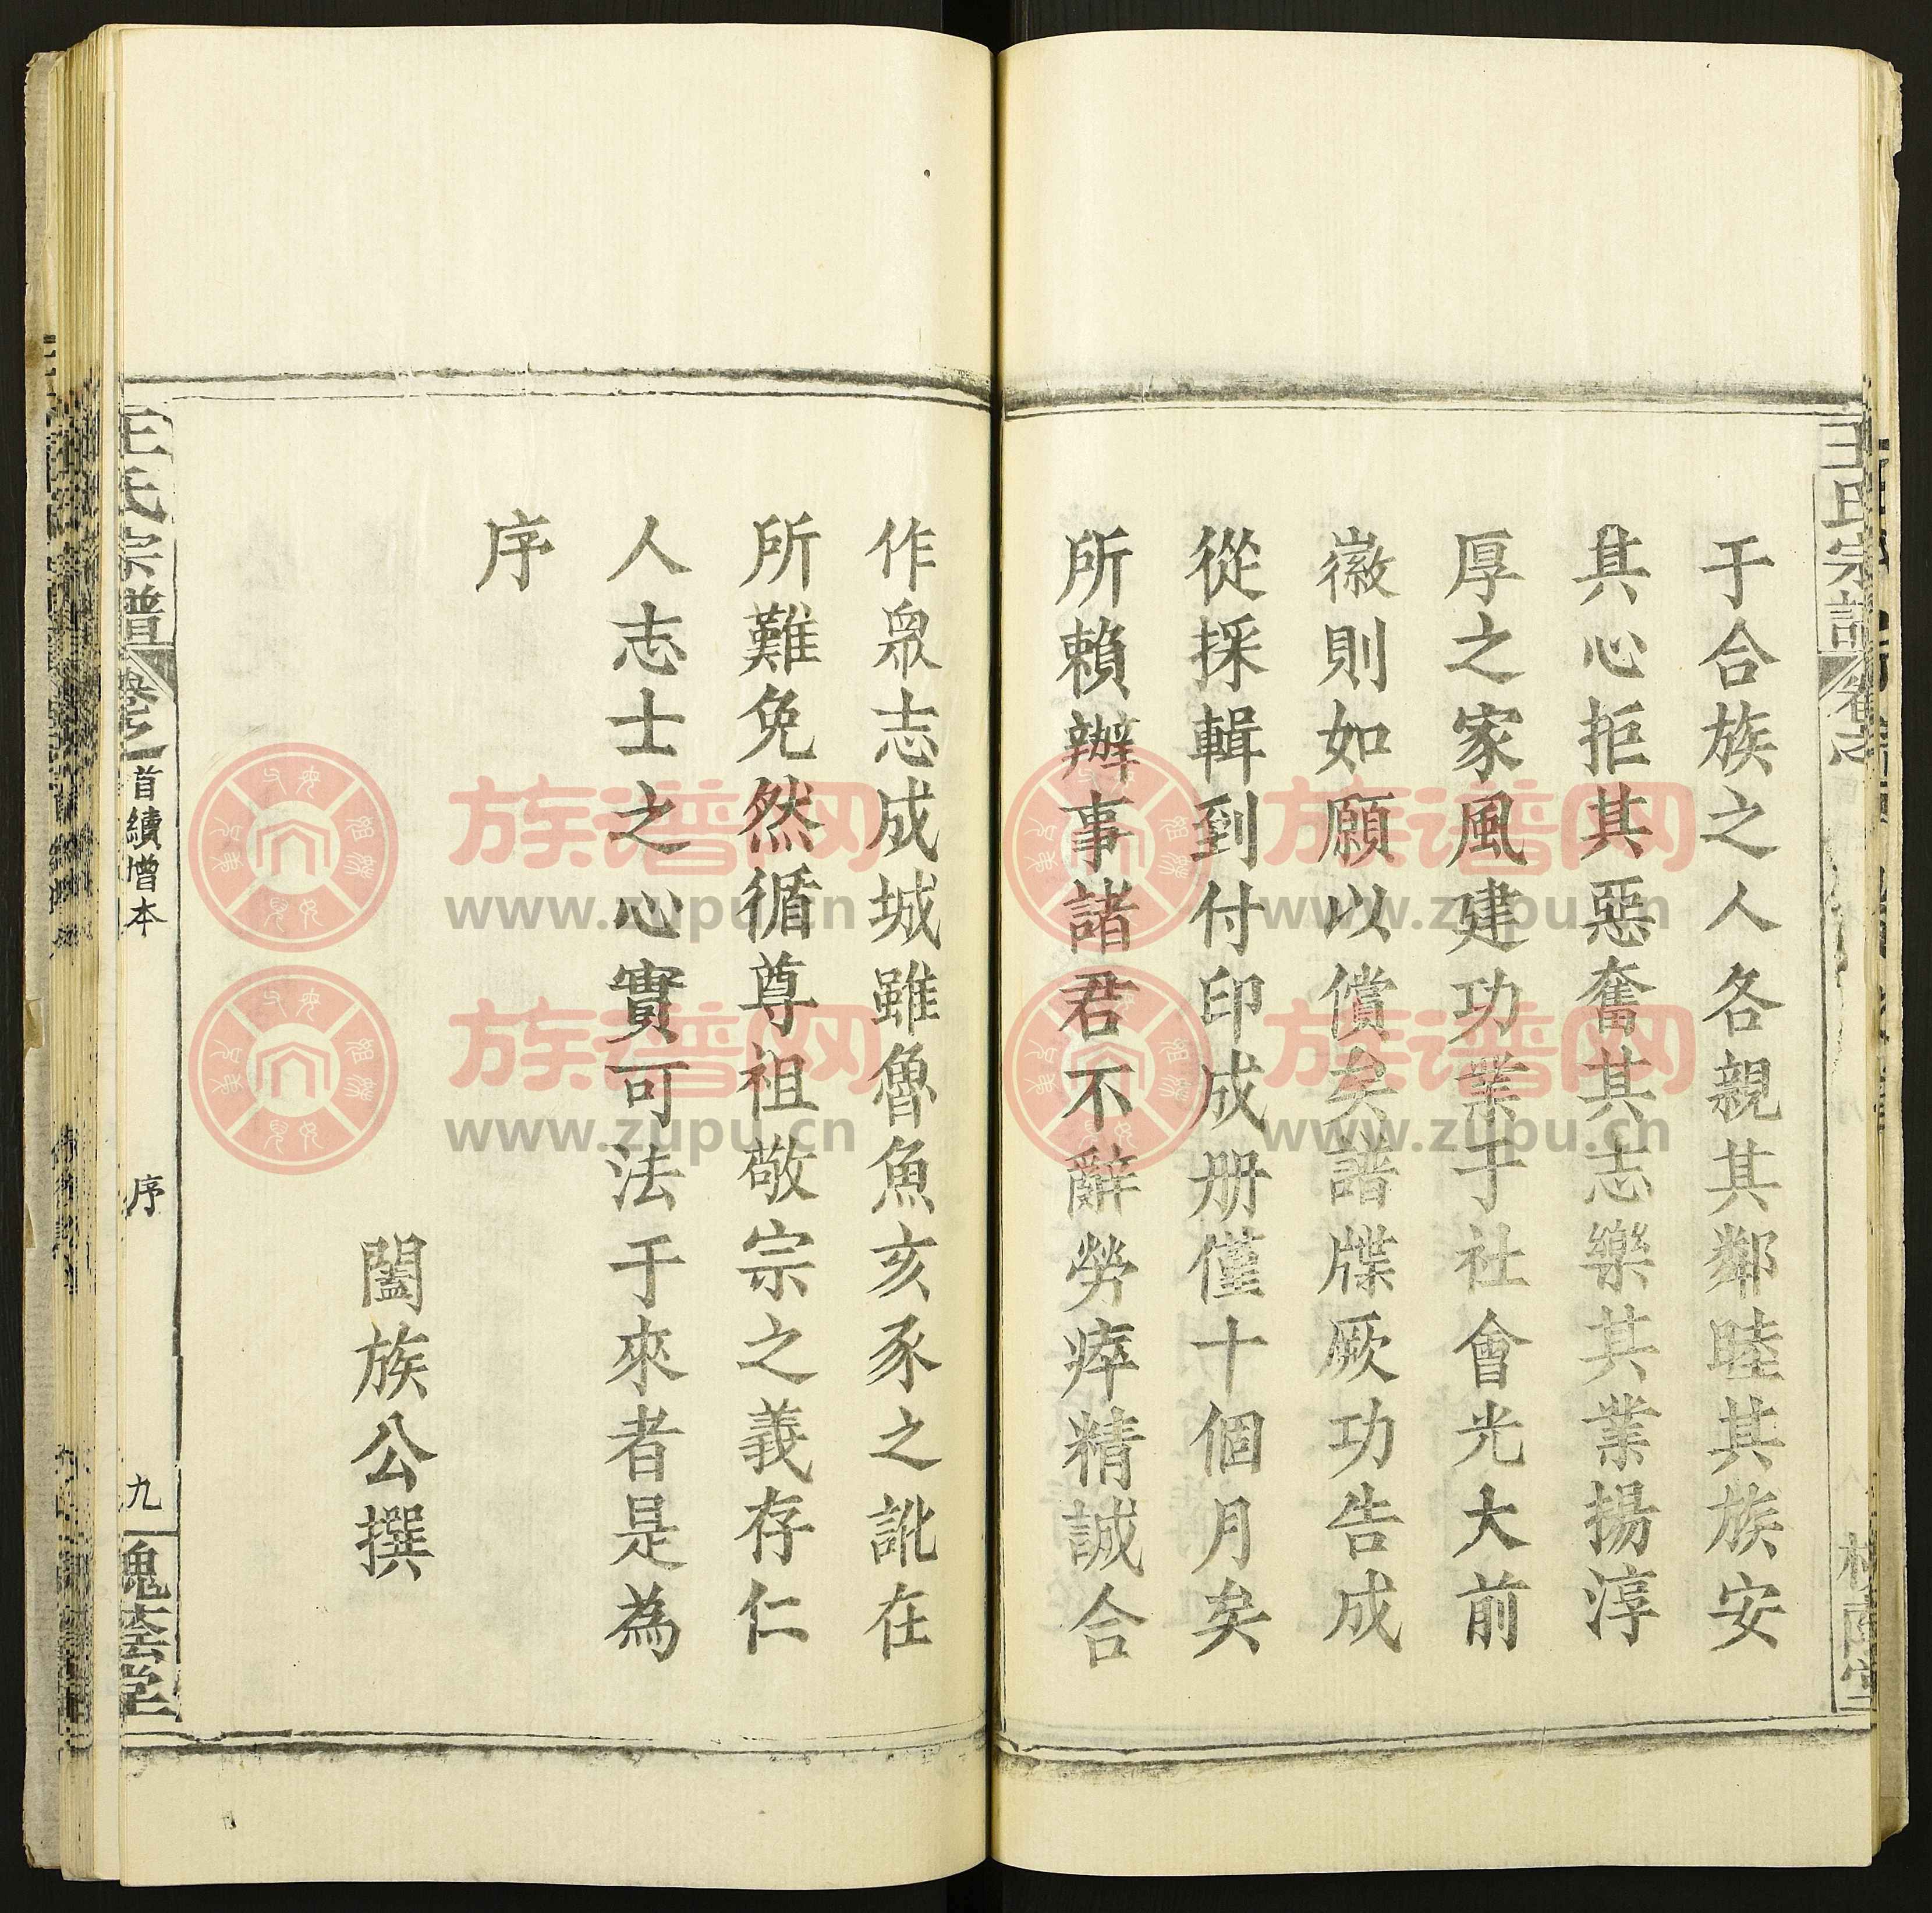 于合族之人各親其鄰睦其族安
其心拒其惡奮其志樂其業揚淳
厚之家風建功業于社會光大前
徽則如願以償矣譜牒厥功告成
從採輯到付印成册僅十個月矣
所賴辦事諸君不辭勞瘁精誠合
作衆志成城雖魯魚亥豕之訛在
所難免然循尊祖敬宗之義存仁
人志士之心實可法于來者是為
序
闔族公撰
王氏宗譜
卷之
首續增本
序
九
槐蔭堂
王氏宗譜
卷之
族谱网
www.zupu.cn
族谱网
www.zupu.cn
族谱网
www.zupu.cn
族谱网
www.zupu.cn